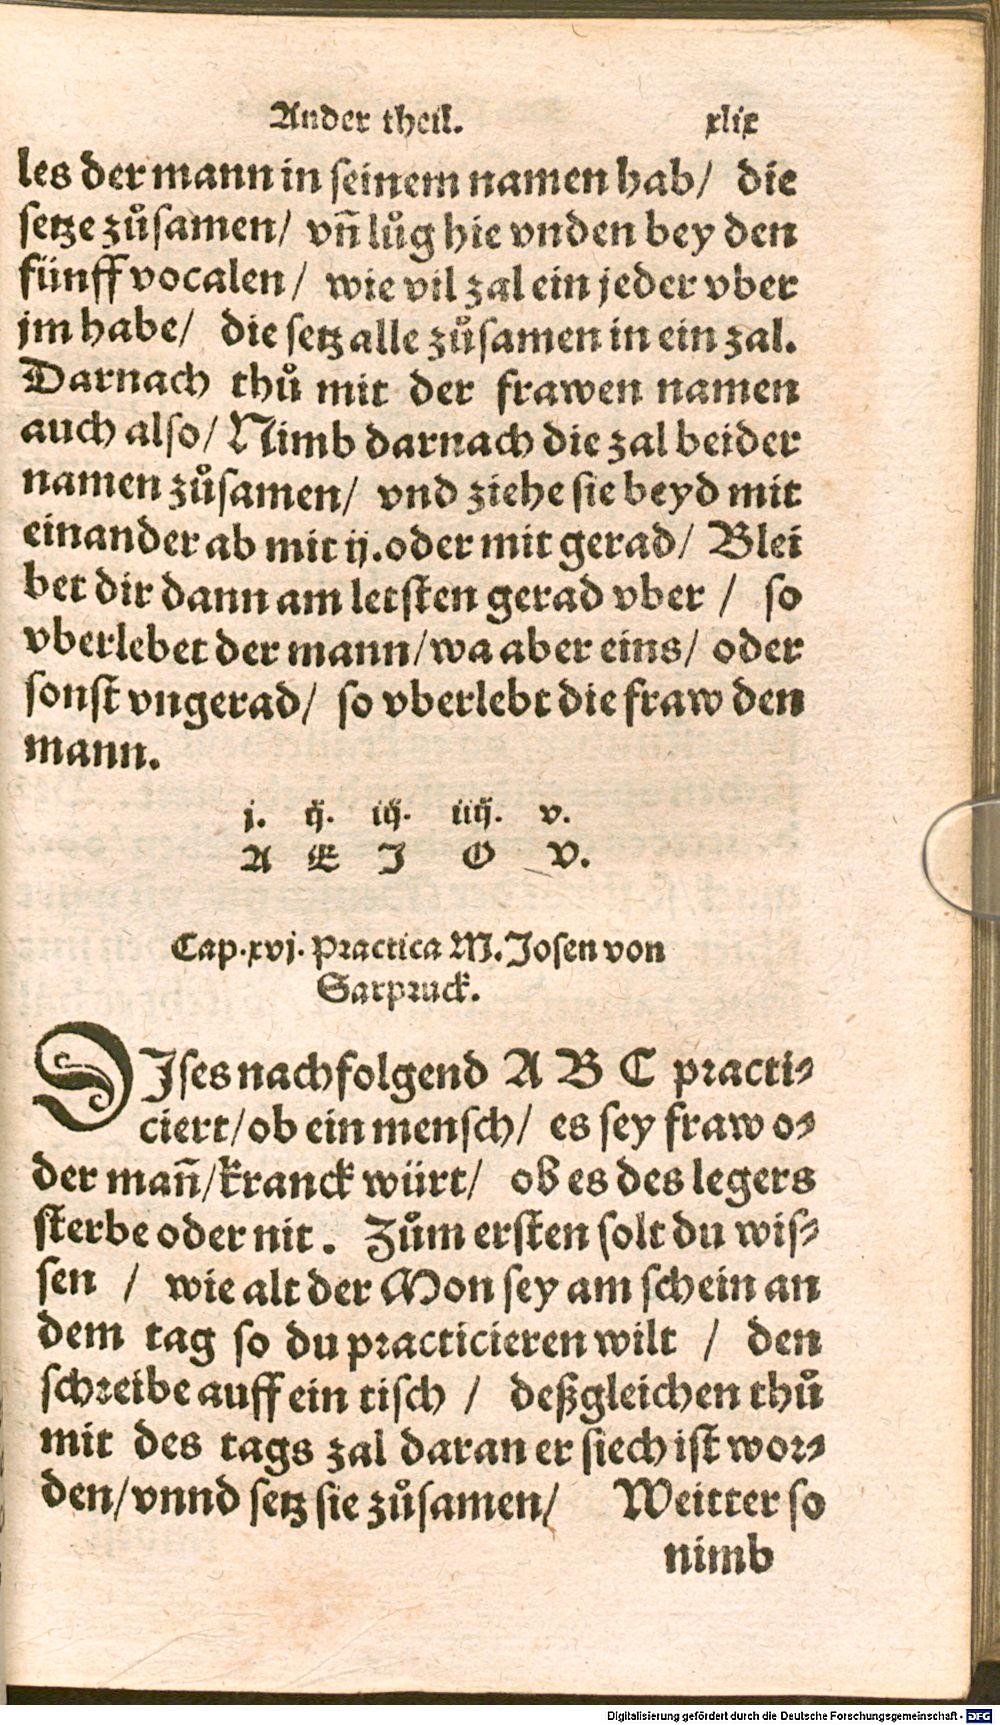 Ander theil. xlix
les der mann in seinem namen hab/ die
setze zůsamen/ vñ lůg hie vnden bey den
fünff vocalen/ wie vil zal ein jeder vber
jm habe/ die setz alle zůsamen in ein zal.
Darnach thů mit der frawen namen
auch also/ Nimb darnach die zal beider
namen zůsamen/ vnd ziehe sie beyd mit
einander ab mit ij. oder mit gerad/ Blei
bet dir dann am letsten gerad vber / so
vberlebet der mann/ wa aber eins/ oder
sonst vngerad/ so vberlebt die fraw den
mann.
j. ij. iij. iiij. v.
A E I O V.
Cap. xvj. Practica M. Josen von
Sarpruck.
DIses nachfolgend A B C practi-
ciert/ ob ein mensch/ es sey fraw o-
der mañ/ kranck würt/ ob es des legers
sterbe oder nit. Zům ersten solt du wis-
sen / wie alt der Mon sey am schein an
dem tag so du practicieren wilt / den
schreibe auff ein tisch / deßgleichen thů
mit des tags zal daran er siech ist wor-
den/ vnnd setz sie zůsamen/ Weitter so
nimb
Digitalisierung gefördert durch die Deutsche Forschungsgemeinschaft - DFG